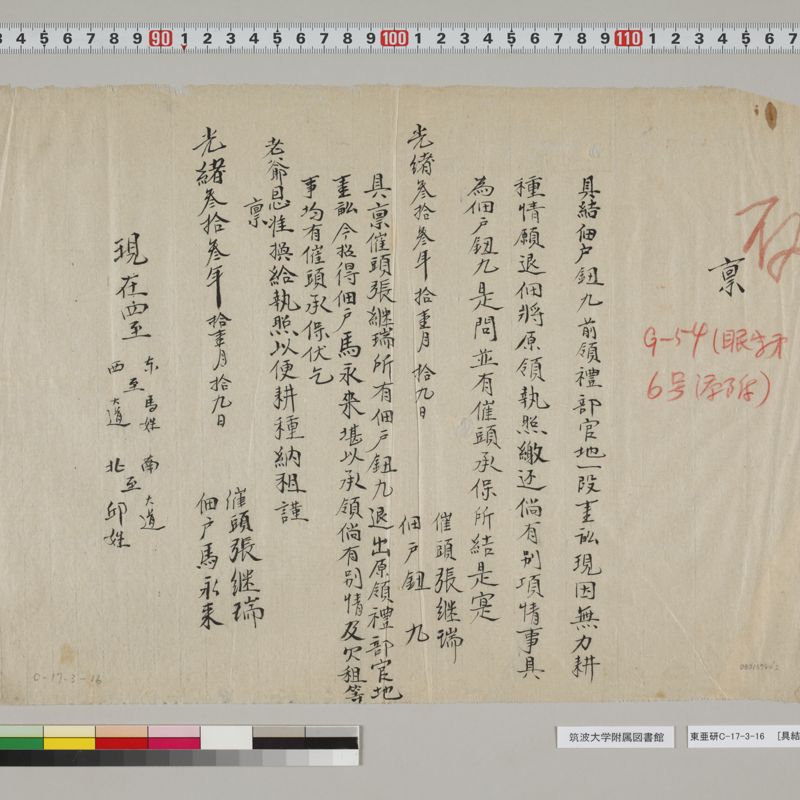 稟
具結佃戶鈕九前領禮部官地一段壹畝現因無力耕
種情願退佃將原領執照繳还倘有别項情事具
為佃戶鈕九是問並有催頭承保所結是寔
催頭張継瑞
佃戶鈕九
光緒叁拾叁年拾壹月拾九日
具稟催頭張継瑞所有佃戶鈕九退出原領禮部官地
壹畝今招得佃戶馬永來堪以承領倘有别情及欠租等
事均有催頭承保伏乞
老爺恩准換給執照以便耕種納租謹
稟
催頭張継瑞
佃戶馬永来
光緒叁拾叁年拾壹月拾九日
現在四至
东馬姓
南大道
西至大道
北至邱姓
G-54
6号
C-17-3-16
3 4 5 6 7 8 9 90 1 2 3 4 5 6 7 8 9 100 1 2 3 4 5 6 7 8 9 110 1 2 3 4 5 6 7
筑波大学附属図書館
東亜研C-17-3-16 [具結